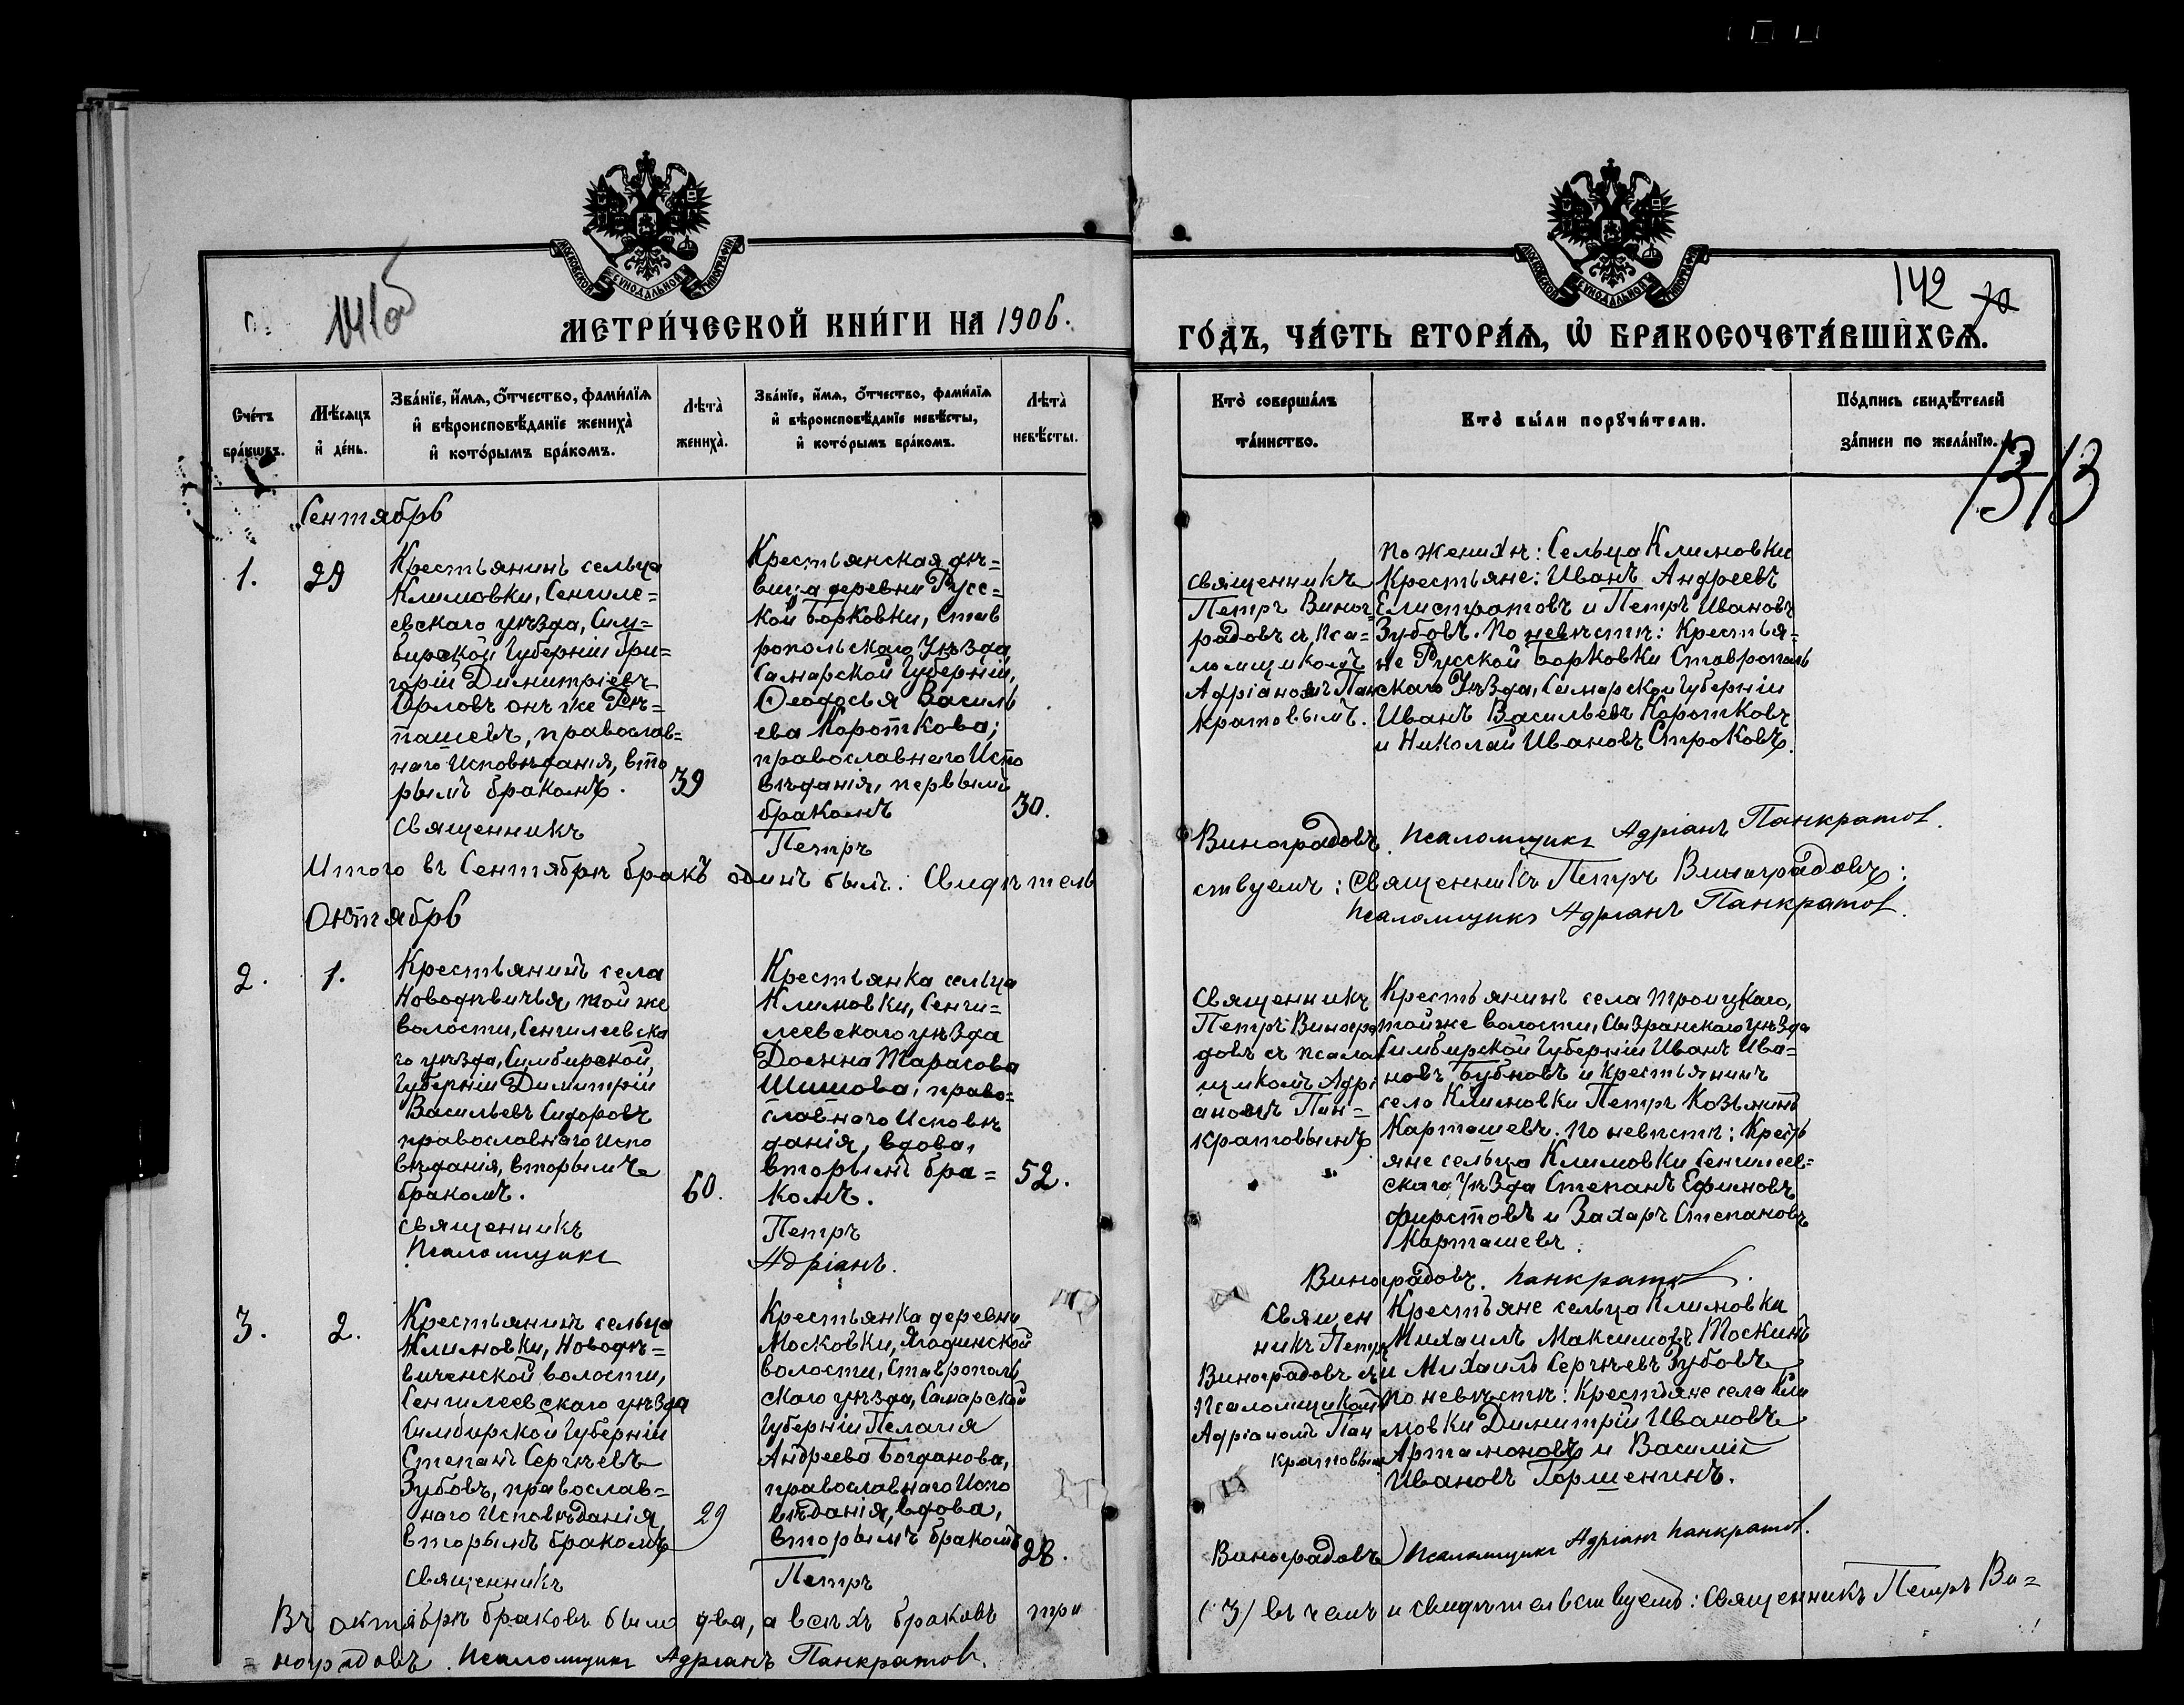 141об
142 70
МОСКОВСКОЙ СѴНОДАЛЬНОЙ ТИПОГРАФІИ
МОСКОВСКОЙ СѴНОДАЛЬНОЙ ТИПОГРАФІИ
МЕТРИ́ЧЕСКОЙ КНИ́ГИ НА 1906.
ГО́ДЪ, ЧА́СТЬ ВТОРА́Ѧ, Ѡ҆ БРАКОСОЧЕТА́ВШИХСѦ.
Сче́тъ
бра́кѡвъ.
Мѣ́сѧцъ
и҆ де́нь.
Зва́нїе, и҆́мѧ, ѻ҆́тчество, фами́лїѧ
и҆ вѣроисповѣ́данїе жениха̀
и҆ кото́рымъ бра́комъ.
Лѣ́та̀
жениха̀.
Зва́нїе, и҆́мѧ, ѻ҆́тчество, фами́лїѧ
и҆ вѣроисповѣ́данїе невѣ́сты,
и҆ кото́рымъ бра́комъ.
Лѣ́та̀
невѣ́сты.
Кто̀ соверша́лъ
та́инство.
Кто̀ бы́ли порꙋчи́тели.
По́дпись свидѣ́телей
за́писи по жела́нїю.
13 13
Сентябрь
1.
29
Крестьянинъ сельца
Климовки, Сенгиле=
евскаго уѣзда, Сим=
бирской Губерніи Гри=
горій Димитріевъ
Орловъ онъ же Рѣ=
пашевъ, православ=
наго Исповѣданія, вто
рымъ бракомъ.
39
Крестьянская дѣ=
вица деревни Русс=
кой Борковки, Став
ропольскаго Уѣзда,
Самарской Губерніи,
Ѳеодосья Василь
ева Короткова;
православнаго Испо
вѣданія, первымъ
бракомъ
30.
священникъ
Петръ Виног=
радовъ съ пса=
ломщикомъ
Адріаномъ Пан
кратовымъ.
По женихѣ: Сельца Климовки
Крестьяне: Иванъ Андреевъ
Елистратовъ и Петръ Ивановъ
Зубовъ. По невѣстѣ: Крестья=
не Русской Борковки Ставрополь
скаго Уѣзда, Самарской Губерніи
Иванъ Васильевъ Коротковъ
и Николай Ивановъ Строковъ.
Священникъ Петръ Виноградовъ. Псаломщикъ Адріанъ Панкратов.
Итого въ Сентябрѣ бракъ одинъ былъ. Свидѣтель
ствуемъ: Священникъ Петръ Виноградовъ;
Псаломщикъ Адріанъ Панкратов.
Октябрь
2.
1.
Крестьянинъ села
Новодѣвичья, той же
волости, Сенгилеевска
го уѣзда, Симбирской,
Губерніи Димитрій
Васильевъ Сидоровъ
православнаго Испо
вѣданія, вторымъ
бракомъ.
60.
Крестьянка сельца
Климовки, Сенги=
леевскаго уѣзда
Доѳнна Тарасова
Шишова, право=
славнаго Исповѣ
данія, вдова,
вторымъ бра=
комъ.
52.
Священникъ
Петръ Виногра
довъ съ псалом
щикомъ Адрі
аномъ Пан=
кратовымъ
Крестьянинъ села Троицкаго,
той же волости, Сызранскаго уѣзда
Симбирской Губерніи Иванъ Ива=
новъ Бубновъ и Крестьянинъ
села Климовки Петръ Козьминъ
Карташевъ. По невѣстѣ: Кресть
яне сельца Климовки Сенгилеев=
скаго Уѣзда Степанъ Ефимовъ
Фирстовъ и Захаръ Степановъ
Карташевъ.
Священникъ Петръ Виноградовъ.
Псаломщикъ Адріанъ. Панкратов.
3.
2.
Крестьянинъ сельца
Климовки, Новодѣ=
виченской волости,
Сенгилеевскаго уѣзда
Симбирской Губерніи
Степанъ Сергѣевъ
Зубовъ, православ=
наго Исповѣданія
вторымъ бракомъ
29
Крестьянка деревни
Московки, Ягодинской
волости, Ставрополь
скаго уѣзда, Самарской
Губерніи Пелагія
Андреева Богданова,
православнаго Испо
вѣданія, вдова,
вторымъ бракомъ
28.
Священ
никъ Петръ
Виноградовъ съ
Псаломщикомъ
Адріаномъ Пан
кратовым
Крестьяне сельца Климовки
Михаилъ Максимовъ Москинъ
и Михаилъ Сергѣевъ Зубовъ
по невѣстѣ: Крестьяне села Кли
мовки Димитрій Ивановъ
Артамоновъ и Василій
Ивановъ Паршенинъ.
Священникъ Петръ Виноградовъ Псаломщикъ Адріанъ Панкратов.
Въ октябрѣ браковъ было два, а всѣхъ браковъ три (3) въ чемъ и свидѣтельствуемъ: Священникъ Петръ Ви=
ноградовъ. Псаломщикъ Адріанъ Панкратов.